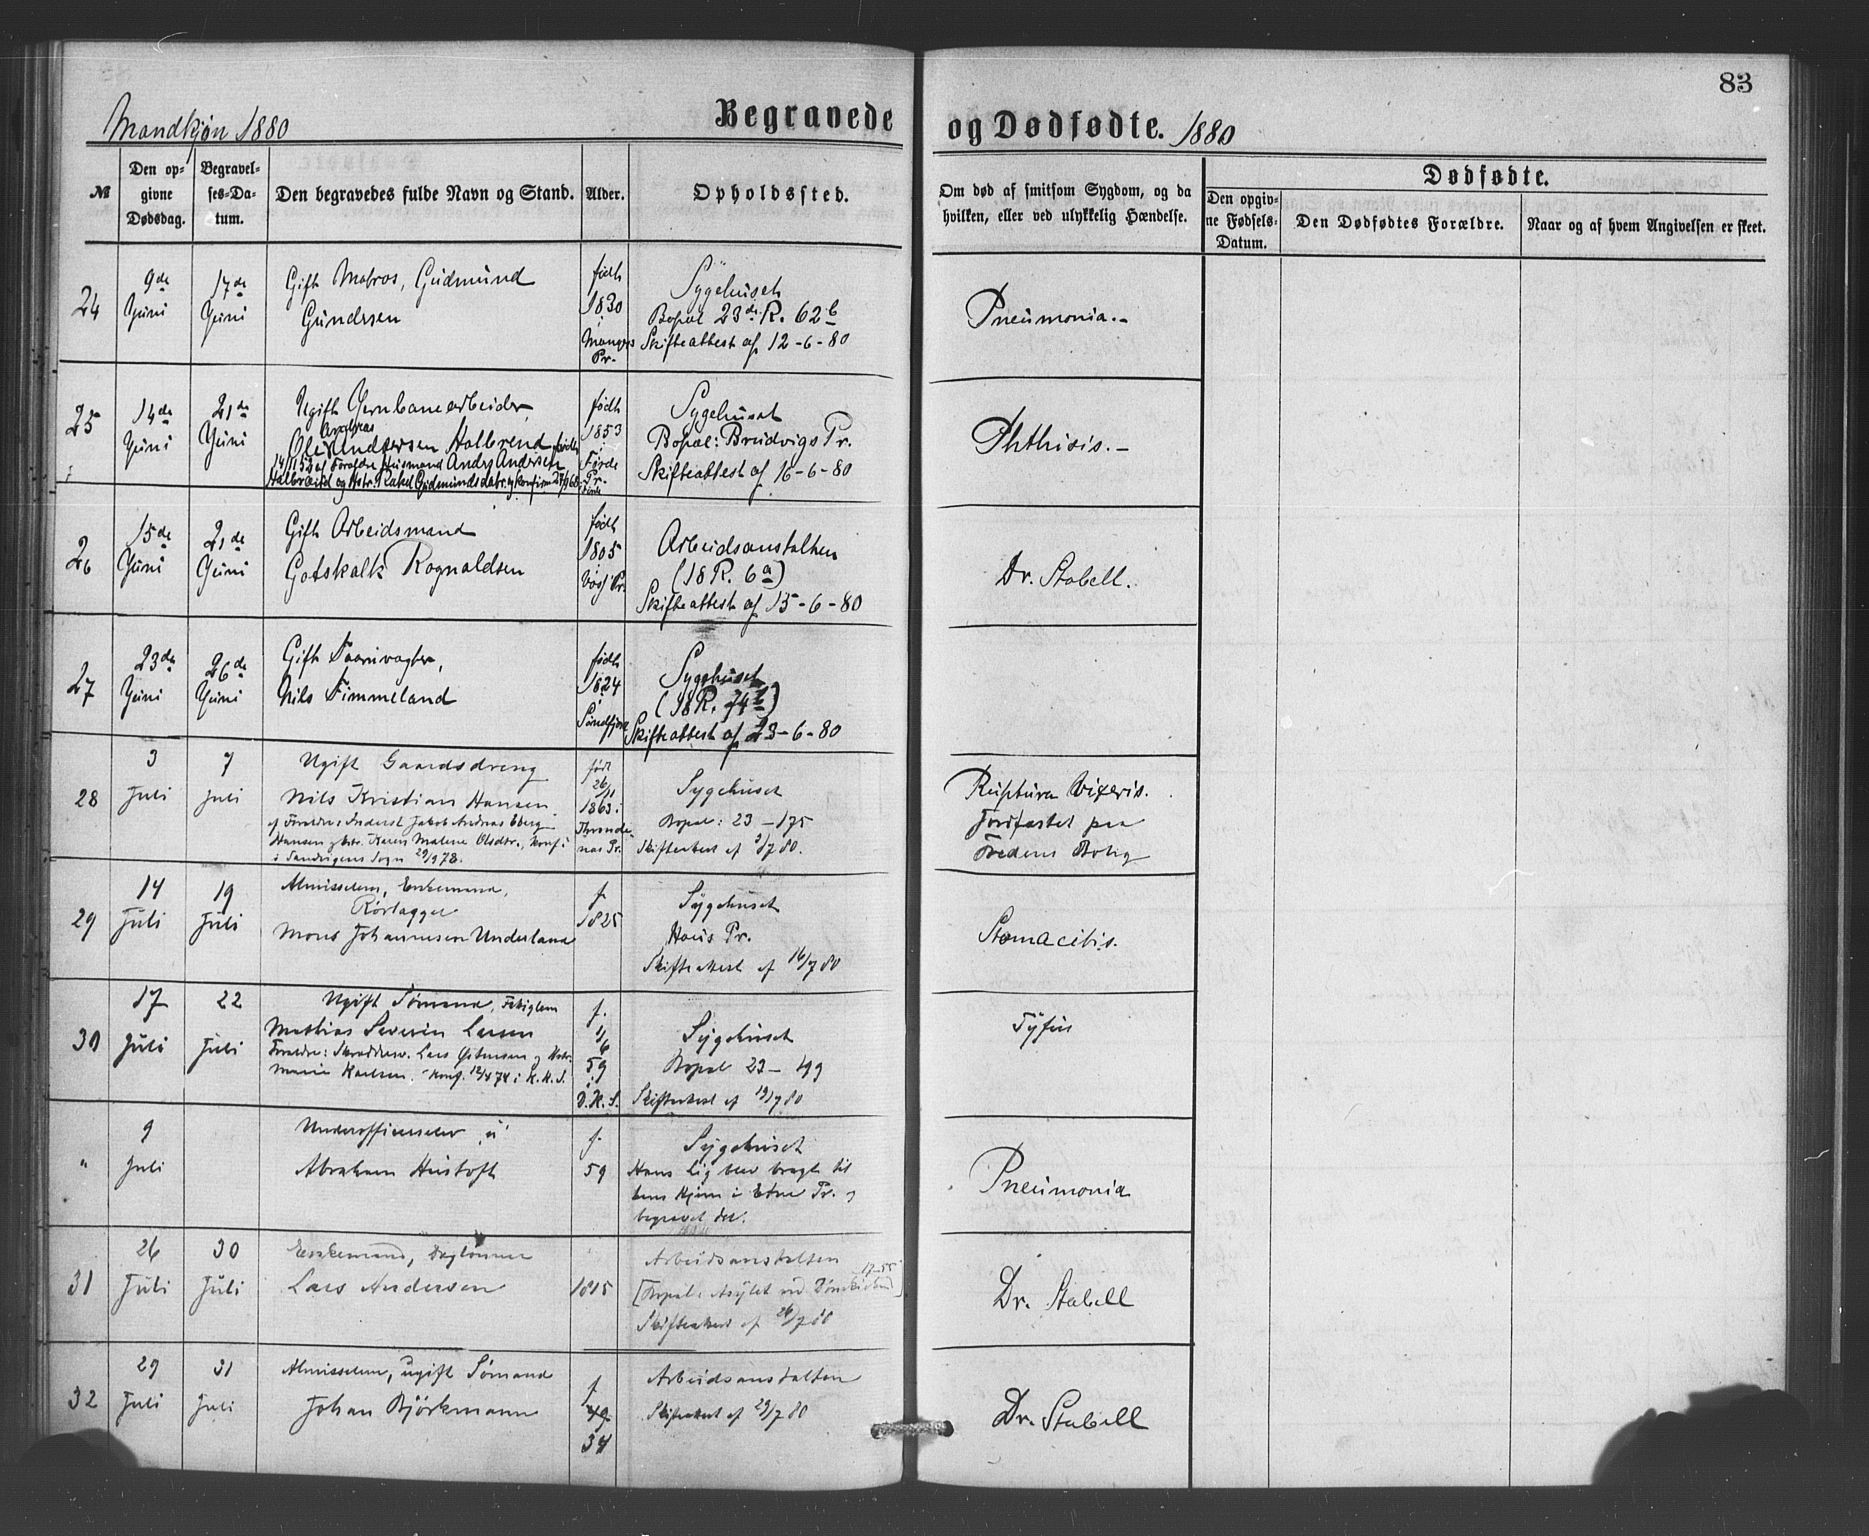 83
Mandkjøn 1880
Begravede og Dødfødte. 1880
№
Den opgivne Dødsdag.
Begravelses-Datum.
Den begravedes fulde Navn og Stand.
Alder.
Opholdssted.
Om død af smitsom Sygdom, og da hvilken, eller ved ulykkelig Hændelse.
Dødfødte.
Den opgivne Fødsels-Datum.
Den Dødfødtes Forældre.
Naar og af hvem Angivelsen er skeet.
24
9de Juni
17de Juni
Gift Matros, Gudmund
Gundersen
født
1830
i
Mangers
Pr.
Sygehuset
Bopæl 23de R. 62b
Skifteattest af 12-6-80
Pneumonia.-
25
14de Juni
21de Juni
Ugift Jernbanearbeider
Andreas
Ole Andersen Halbrend født
14/11 53 af Forældre Husmand Anders Andersen
Halbrend og Hstr. Rakel Gudmundsdatr. og konfirm 27/9 68 i
Førde
født
1853
i
Førde
Pr.
Sygehuset
Bopæl: Brudvigs Pr.
Skifteattest af 16-6-80
Phthisis.-
26
15de Juni
21de Juni
Gift Arbeidsmand
Gotskalk Rognaldsen
født
1805
i
Voss Pr.
Arbeidsanstalten
(18 R. 6a)
Skifteattest af 15-6-80
Dr. Stabell.
27
23de Juni
26de Juni
Gift Taarnvagter,
Nils Timmeland
født
1824
i
Søndfjord
Sygehuset
(18 R. 74b)
Skifteattest af 23-6-80
28
3 Juli
7 Juli
Ugift Gaardsdreng
Nils Kristian Hansen
af Forældre: Inderst Jakob Andreas Eberg
Hansen og Hstr. Karen Malene Olsdtr., konf. i
i Sandvigens Sogn 29/9 78.
født
26/11
1863 i
Throndenæs Pr.
Sygehuset
Bopæl: 23 - 175
Skifteattest af 3/7 80.
Ruptura
Jordfæstet paa
Fredens Bolig
29
14 Juli
19 Juli
Almisselem, Enkemand,
Rørlægger
Mons Johannesen Underland
f.
1825
Sygehuset
Haus Pr.
Skifteattest af 16/7 80
Stomacitis.
30
17 Juli
22 Juli
Ugift Sømand, Fattiglem
Mathias Severin Larsen
Forældre: Skræddersv. Lars Østensen og Hstr.
Marie Karlsen. Konf. 12/4 74 i K. K. S.
f.
1/6
59
i
D. K. S.
Sygehuset
Bopæl 23 - 499
Skifteattest af 19/7 80
Tyfus
"
9 Juli
Underofficerselev, u
Abraham Hustoft
f.
59
Sygehuset
Hans Lig blev bragt til
hans Hjem i Etne Pr. og
begravet der.
Pneumonia
31
26 Juli
30 Juli
Enkemand, Daglønner
Lars Andersen
1815
Arbeidsanstalten
17-55
[Bopæl: Asylet ved Domkirken]
Skifteattest af 26/7 80
Dr. Stabell
32
29 Juli
31 Juli
Almisselem, ugift Sømand
Johan Björkmann
f.
49
34
Arbeidsanstalten
Skifteattest af 29/7 80
Dr. Stabell